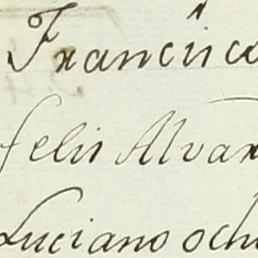 Francisco
felis Alvar
Luciano ocho